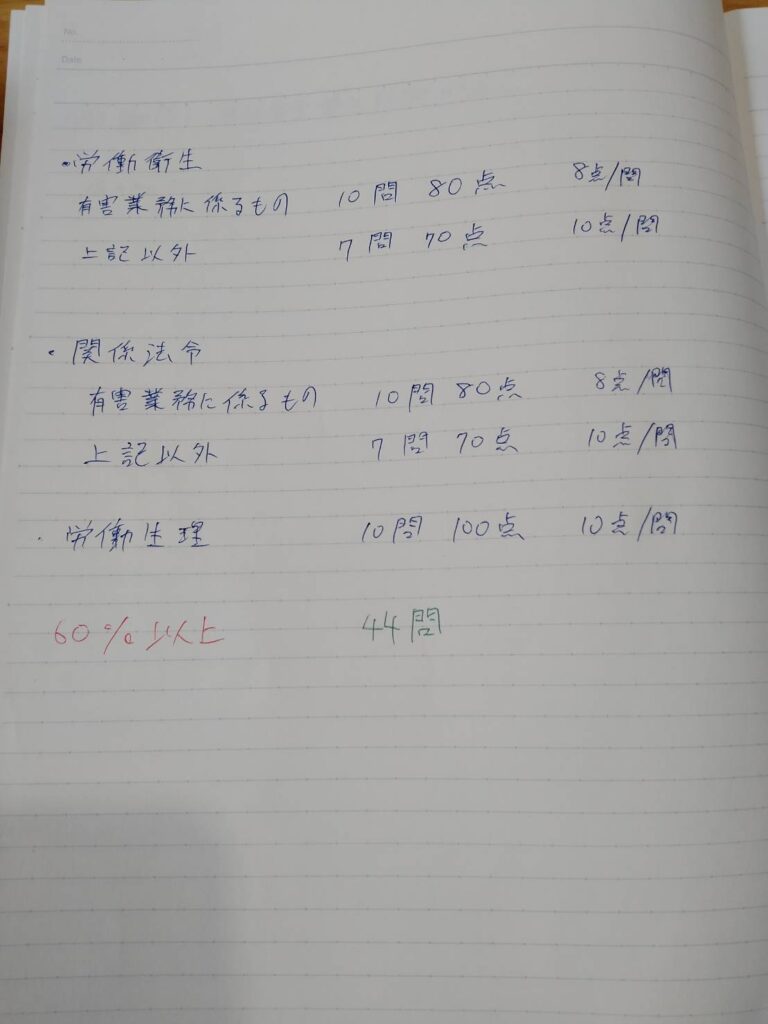 No.
Date
・労働衛生
有害業務に係るもの 10問 80点 8点/問
上記以外 7問 70点 10点/問
・関係法令
有害業務に係るもの 10問 80点 8点/問
上記以外 7問 70点 10点/問
・労働生理 10問 100点 10点/問
60%以上 44問